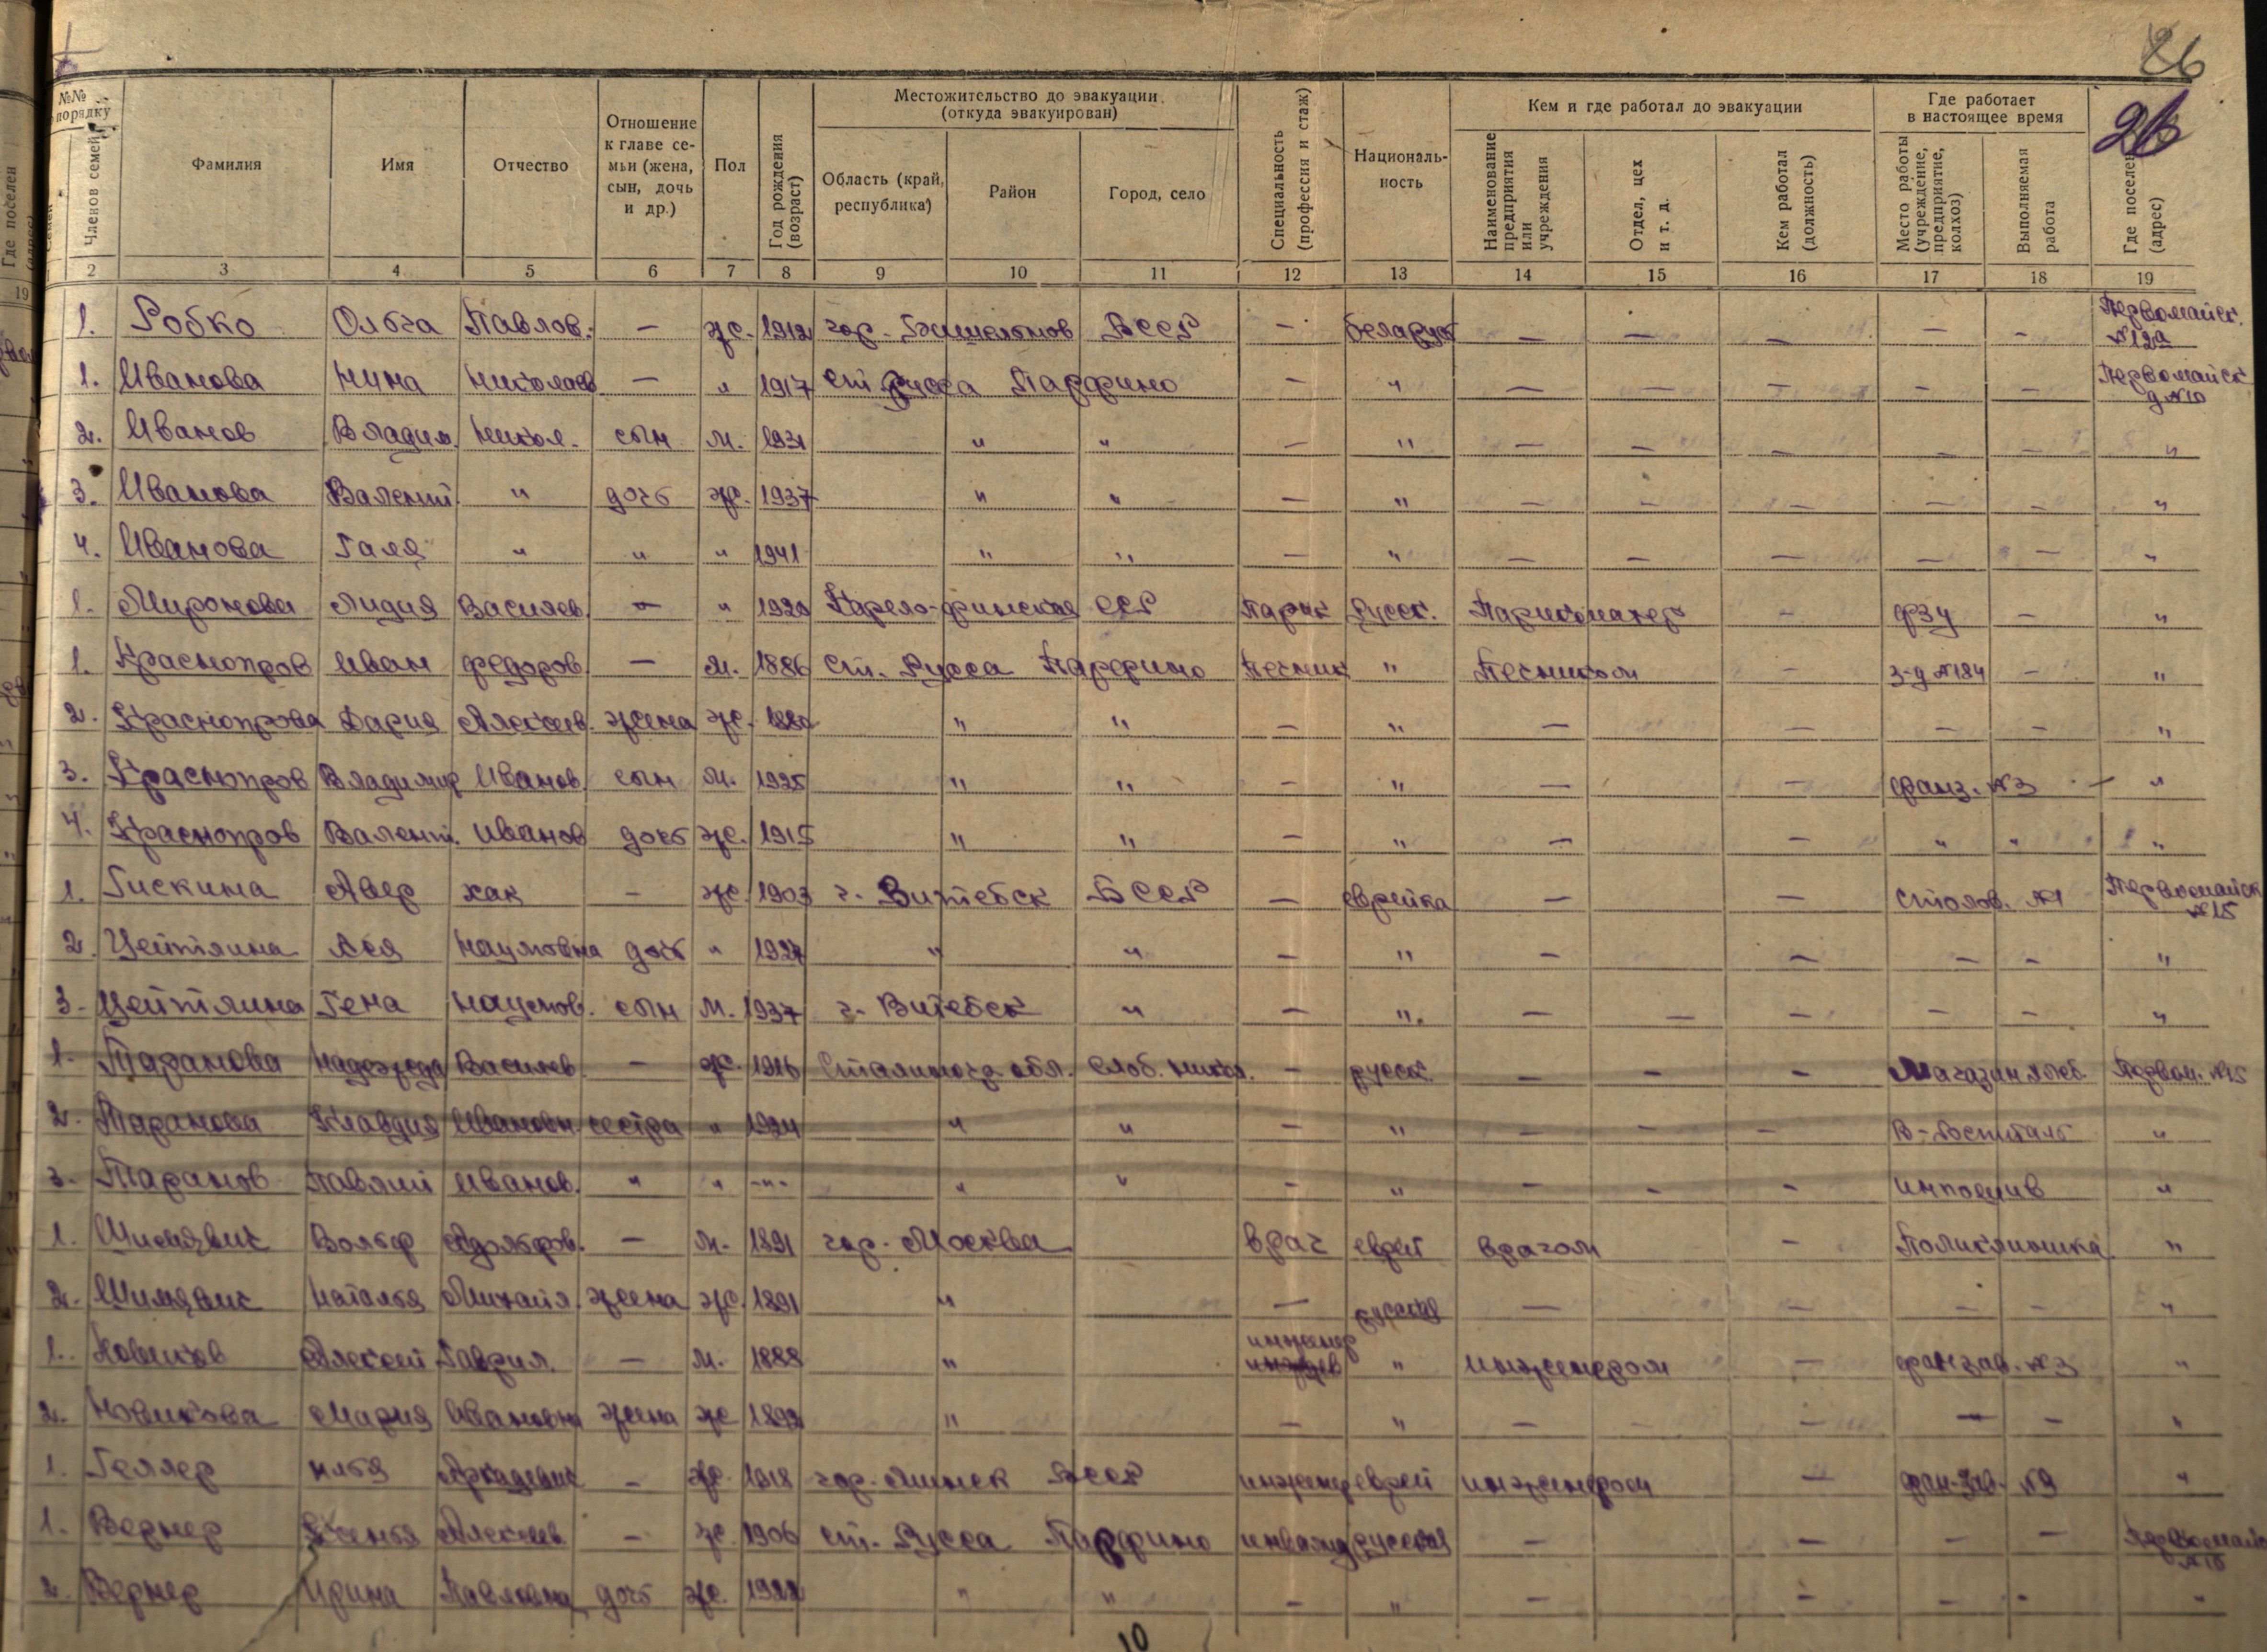 26
26
№№ порядку
Членов семей
Фамилия
Имя
Отчество
Отношение к главе семьи (жена, сын, дочь и др.)
Пол
Год рождения (возраст)
Местожительство до эвакуации (откуда эвакуирован)
Область (край, республика)
Район
Город, село
Специальность (профессия и стаж)
Националь-ность
Кем и где работал до эвакуации
Наименование предприятия или учреждения
Отдел, цех и т. д.
Кем работал (должность)
Где работает в настоящее время
Место работы (учреждение, предприятие, колхоз)
Выполняемая работа
Где поселен (адрес)
2 3 4 5 6 7 8 9 10 11 12 13 14 15 16 17 18 19
1. Робко Ольга Павлов. — ж. 1912 гор. БССР — беларус — — — — — Первомайск. №12а
1. Иванова Нина Николаев — " 1917 ст. Русса Парфино — " — — — — — Первомайск д №10
2. Иванов Владим. Никол. сын м. 1931 " " — " — — — — — "
3. Иванова Валент. " дочь ж. 1937 " " — " — — — — — "
4. Иванова Галя " " " 1941 " " — " — — — — — "
1. Миронова Лидия Василев. — " 1920 Карело-финская ССР Парик Русск. Парикмахер — ФЗУ — "
1. Краснопров Иван Федоров. — м. 1886 Ст. Русса Парфино Песник " Песником — з-д №184 — "
2. Краснопрова Дария Алексеев. жена ж. 1880 " " — " — — — — "
3. Краснопров Владимир Иванов. сын м. 1925 " " — " — — фанз. №3 — "
4. Краснопров Валент. Иванов дочь ж. 1915 " " — " — — " " "
1. Гискина Авер хак — ж. 1903 г. Витебск БССР — еврейка — — столов. №1 Первомайск №15
2. Цейтлина Ася Наумовна дочь " 1927 " " — " — — — — "
3. Цейтлина Гена Наумов. сын м. 1937 г. Витебск " — " — — — — — "
1. Таранова Надежда Василев. — ж. 1916 Сталиногр. обл. Слоб. Никол. — русск. — — — Магазин хлеб. Первом. №15
2. Таранова Клавдия Ивановн. сестра " 1924 " " — " — — — "
3. Таранов Иванов. " " -"- " " — " — — — "
1. Вольф Адольфов. — м. 1891 гор. Москва врач еврей врачом — Поликлиника "
2. Наталья Михайл. жена ж. 1891 " — русская — — — — "
1. Новиков Алексей Гаврил. — м. 1888 " инженер " инженером — фанзав. №3 "
2. Новикова Мария Ивановна жена ж 1892 " — " — — — — — "
1. Геллер Илья Аркадевич — ж. 1918 гор. Минск БССР инженер еврей инженером — фан-зав. №3 "
1. Вернер Ксенья Алексеев — ж. 1906 ст. Русса Парфино инвалид русская — — — — Первомайс №15
2. Вернер Ирина Павловна дочь ж. 1922 " " — " — — — — "
10